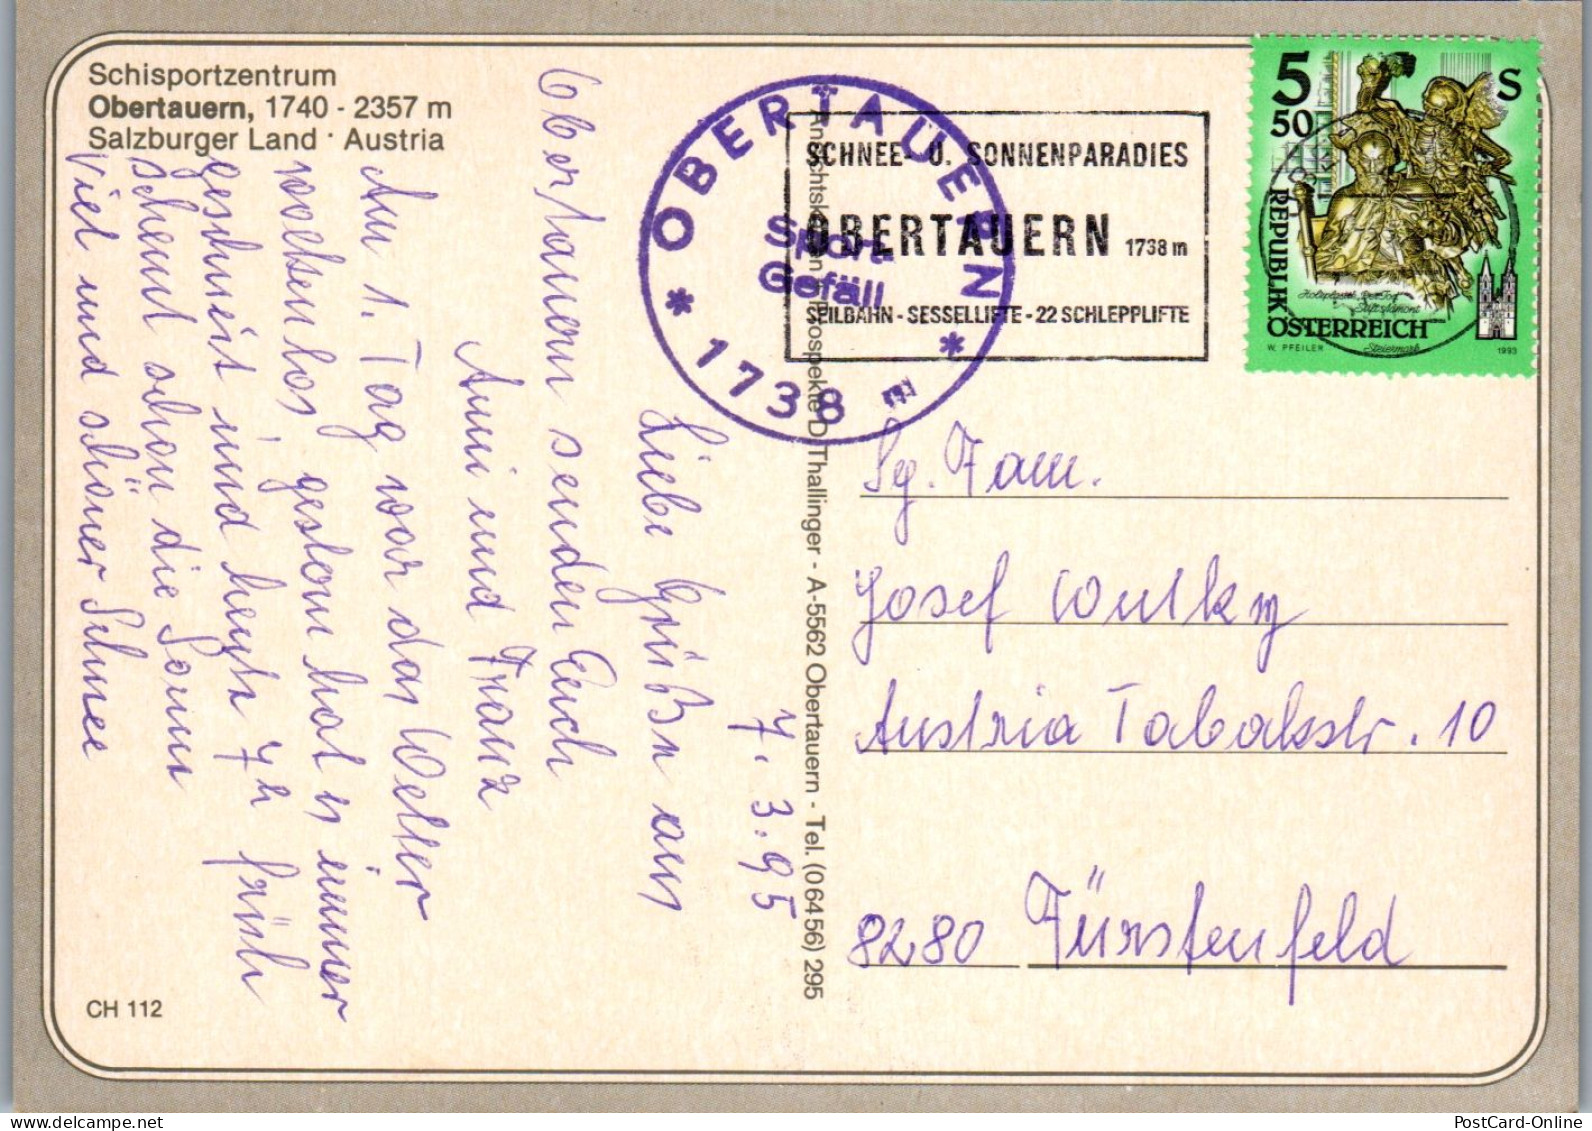 Schisportzentrum
Obertauern, 1740 - 2357 m
Salzburger Land · Austria
7.3.95
Liebe Grüße aus
Obertauern senden Euch
Anni und Franz
Am 1. Tag war das Wetter
wolkenlos gestern hat es immer
geschneit und heute 7h früh
scheint schon die Sonne
Viel und schöner Schnee
CH 112
OBERTAUERN
Sport
Gefäll
* 1738 *
SCHNEE- U. SONNENPARADIES
OBERTAUERN 1738 m
SEILBAHN - SESSELLIFTE - 22 SCHLEPPLIFTE
Ansichtskarten Prospekte D Thallinger - A-5562 Obertauern - Tel. (0 64 56) 295
5 50 S
REPUBLIK
ÖSTERREICH
W. PFEILER
Steiermark
1993
Sg. Fam.
Josef Wulky
Austria Tabakstr. 10
8280 Fürstenfeld
PostCard-Online